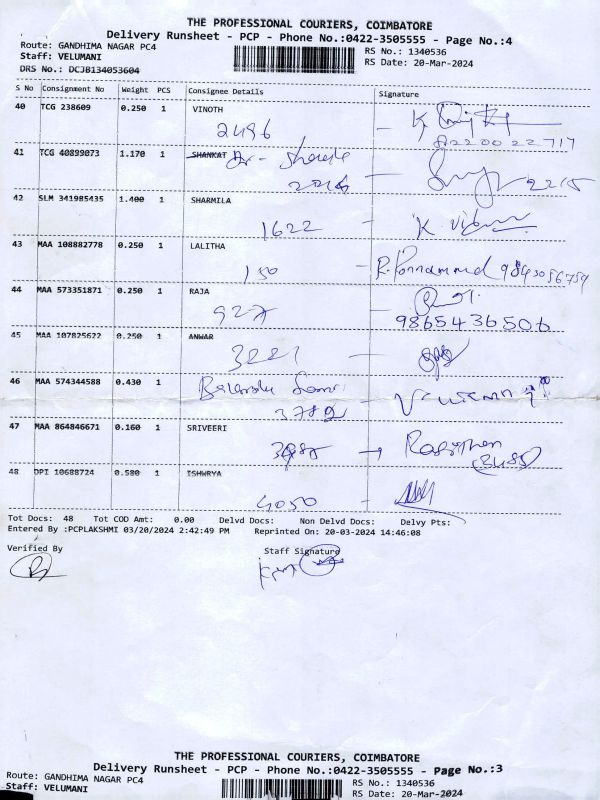 THE PROFESSIONAL COURIERS, COIMBATORE
Delivery Runsheet - PCP - Phone No.:0422-3505555 - Page No.:4
Route: GANDHIMA NAGAR PC4
RS No.: 1340536
Staff: VELUMANI
RS Date: 20-Mar-2024
DRS No.: DCJB134053604
S No Consignment No Weight PCS Consignee Details Signature
40 TCG 238609 0.250 1 VINOTH
2496
41 TCG 40899073 1.170 1 SHANKAT
2215
42 SLM 341985435 1.400 1 SHARMILA
1622
43 MAA 108882778 0.250 1 LALITHA
150 9843086759
44 MAA 573351871 0.250 1 RAJA
927
9865436506
45 MAA 107825622 0.250 1 ANWAR
3221
46 MAA 574344588 0.430 1
3789
47 MAA 864846671 0.160 1 SRIVEERI
48 DPI 10688724 0.580 1 ISHWRYA
4050
Tot Docs: 48 Tot COD Amt: 0.00 Delvd Docs: Non Delvd Docs: Delvy Pts:
Entered By :PCPLAKSHMI 03/20/2024 2:42:49 PM Reprinted On: 20-03-2024 14:46:08
Verified By Staff Signature
THE PROFESSIONAL COURIERS, COIMBATORE
Delivery Runsheet - PCP - Phone No.:0422-3505555 - Page No.:3
Route: GANDHIMA NAGAR PC4
RS No.: 1340536
Staff: VELUMANI
RS Date: 20-Mar-2024